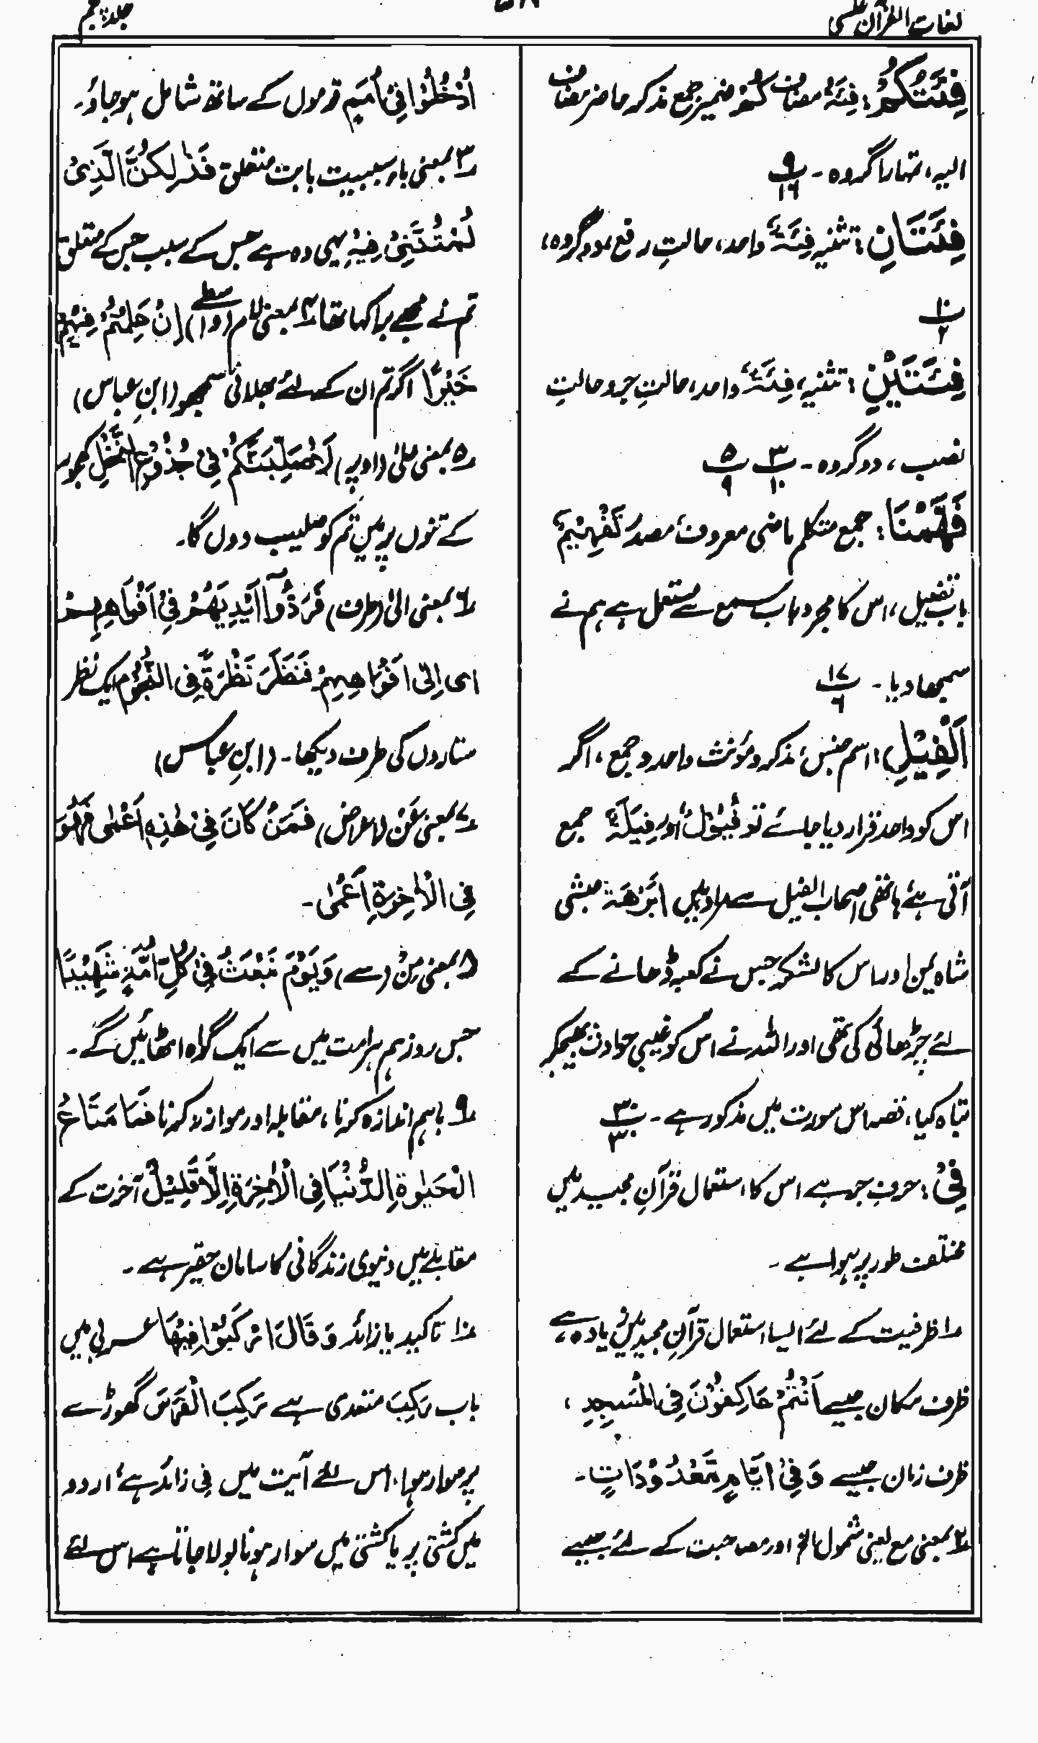 لغات القرآن عکسی
جلد پنجم
فِئَتُكُمْ: فِئَةُ مضاف كُمْ ضمیر جمع مذکر حاضر مضاف
الیہ، تمہارا گروہ۔ ۹/۱۶
فِئَتَانِ: تثنیہ فِئَةٌ واحد، حالتِ رفع، دو گروہ،
۱۰/۲
فِئَتَيْنِ: تثنیہ، فِئَةٌ واحد، حالتِ جر و حالتِ
نصب، دو گروہ۔ ۳/۱۰ ۵/۹
فَهَّمْنَا: جمع متکلم ماضی معروف، مصدر تَفْهِيْمٌ
باب تفعیل، اس کا مجرد باب سمع سے مستعمل ہے ہم نے
سمجھا دیا۔ ۱۷/۶
اَلْفِيْلِ: اسم جنس، مذکر و مؤنث واحد و جمع، اگر
اس کو واحد قرار دیا جائے تو فُيُوْلٌ اور فِيَلَةٌ جمع
آتی ہے، ہاتھی اصحاب الفیل سے مراد ہیں اَبْرَهَة حبشی
شاہ یمن اور اس کا لشکر جس نے کعبہ ڈھانے کے
لئے چڑھائی کی تھی اور اللہ نے اس کو غیبی حوادث بھیجکر
تباہ کیا، قصہ اس سورت میں مذکور ہے۔ ۳۰/۳۰
فِيْ: حرفِ جر ہے اس کا استعمال قرآنِ مجید میں
مختلف طور پر ہوا ہے۔
۱ ظرفیت کے لئے ایسا استعمال قرآنِ مجید میں زیادہ ہے
ظرف مکان جیسے اَنْتُمْ عَاكِفُوْنَ فِي الْمَسٰجِدِ،
ظرف زمان جیسے وَفِيْ اَيَّامٍ مَّعْدُوْدَاتٍ۔
۲ بمعنی مع یعنی شمول اور مصاحبت کے لئے جیسے
اُدْخُلُوْا فِيْ اُمَمٍ قوموں کے ساتھ شامل ہو جاؤ۔
۳ بمعنی باء سببیت بابت متعلق فَذٰلِكُنَّ الَّذِيْ
لُمْتُنَّنِيْ فِيْهِ یہی وہ ہے جس کے سبب جس کے متعلق
تم نے مجھے برا کہا تھا ۴ بمعنی لام (واسطے) اِنْ عَلِمْتُمْ فِيْهِمْ
خَيْرًا اگر تم ان کے لئے بھلائی سمجھو (ابنِ عباس)
۵ بمعنی علیٰ (اوپر) لَاُصَلِّبَنَّكُمْ فِيْ جُذُوْعِ النَّخْلِ کھجور
کے تنوں پر میں تم کو صلیب دوں گا۔
۶ بمعنی الیٰ (طرف) فَرَدُّوْٓا اَيْدِيَهُمْ فِيْ اَفْوَاهِهِمْ
ای اِلٰى اَفْوَاهِهِمْ فَنَظَرَ نَظْرَةً فِي النُّجُوْمِ ایک نظر
ستاروں کی طرف دیکھا۔ (ابنِ عباس)
۷ بمعنی عَنْ (اعراض) فَمَنْ كَانَ فِيْ هٰذِهٖٓ اَعْمٰى فَهُوَ
فِي الْاٰخِرَةِ اَعْمٰى۔
۸ بمعنی مِنْ (سے) وَيَوْمَ نَبْعَثُ فِيْ كُلِّ اُمَّةٍ شَهِيْدًا
جس روز ہم ہر امت میں سے ایک گواہ اٹھائیں گے۔
۹ باہم اندازہ کرنا، مقابلہ اور موازنہ کرنا فَمَا مَتَاعُ
الْحَيٰوةِ الدُّنْيَا فِي الْاٰخِرَةِ اِلَّا قَلِيْلٌ آخرت کے
مقابلے میں دنیوی زندگانی کا سامان حقیر ہے۔
۱۰ تاکید یا زائد وَقَالَ ارْكَبُوْا فِيْهَا عربی میں
باب رَكِبَ متعدی ہے رَكِبَ الْفَرَسَ گھوڑے
پر سوار ہوا، اس لئے آیت میں فی زائد ہے، اردو
میں کشتی پر یا کشتی میں سوار ہونا بولا جاتا ہے اس لئے